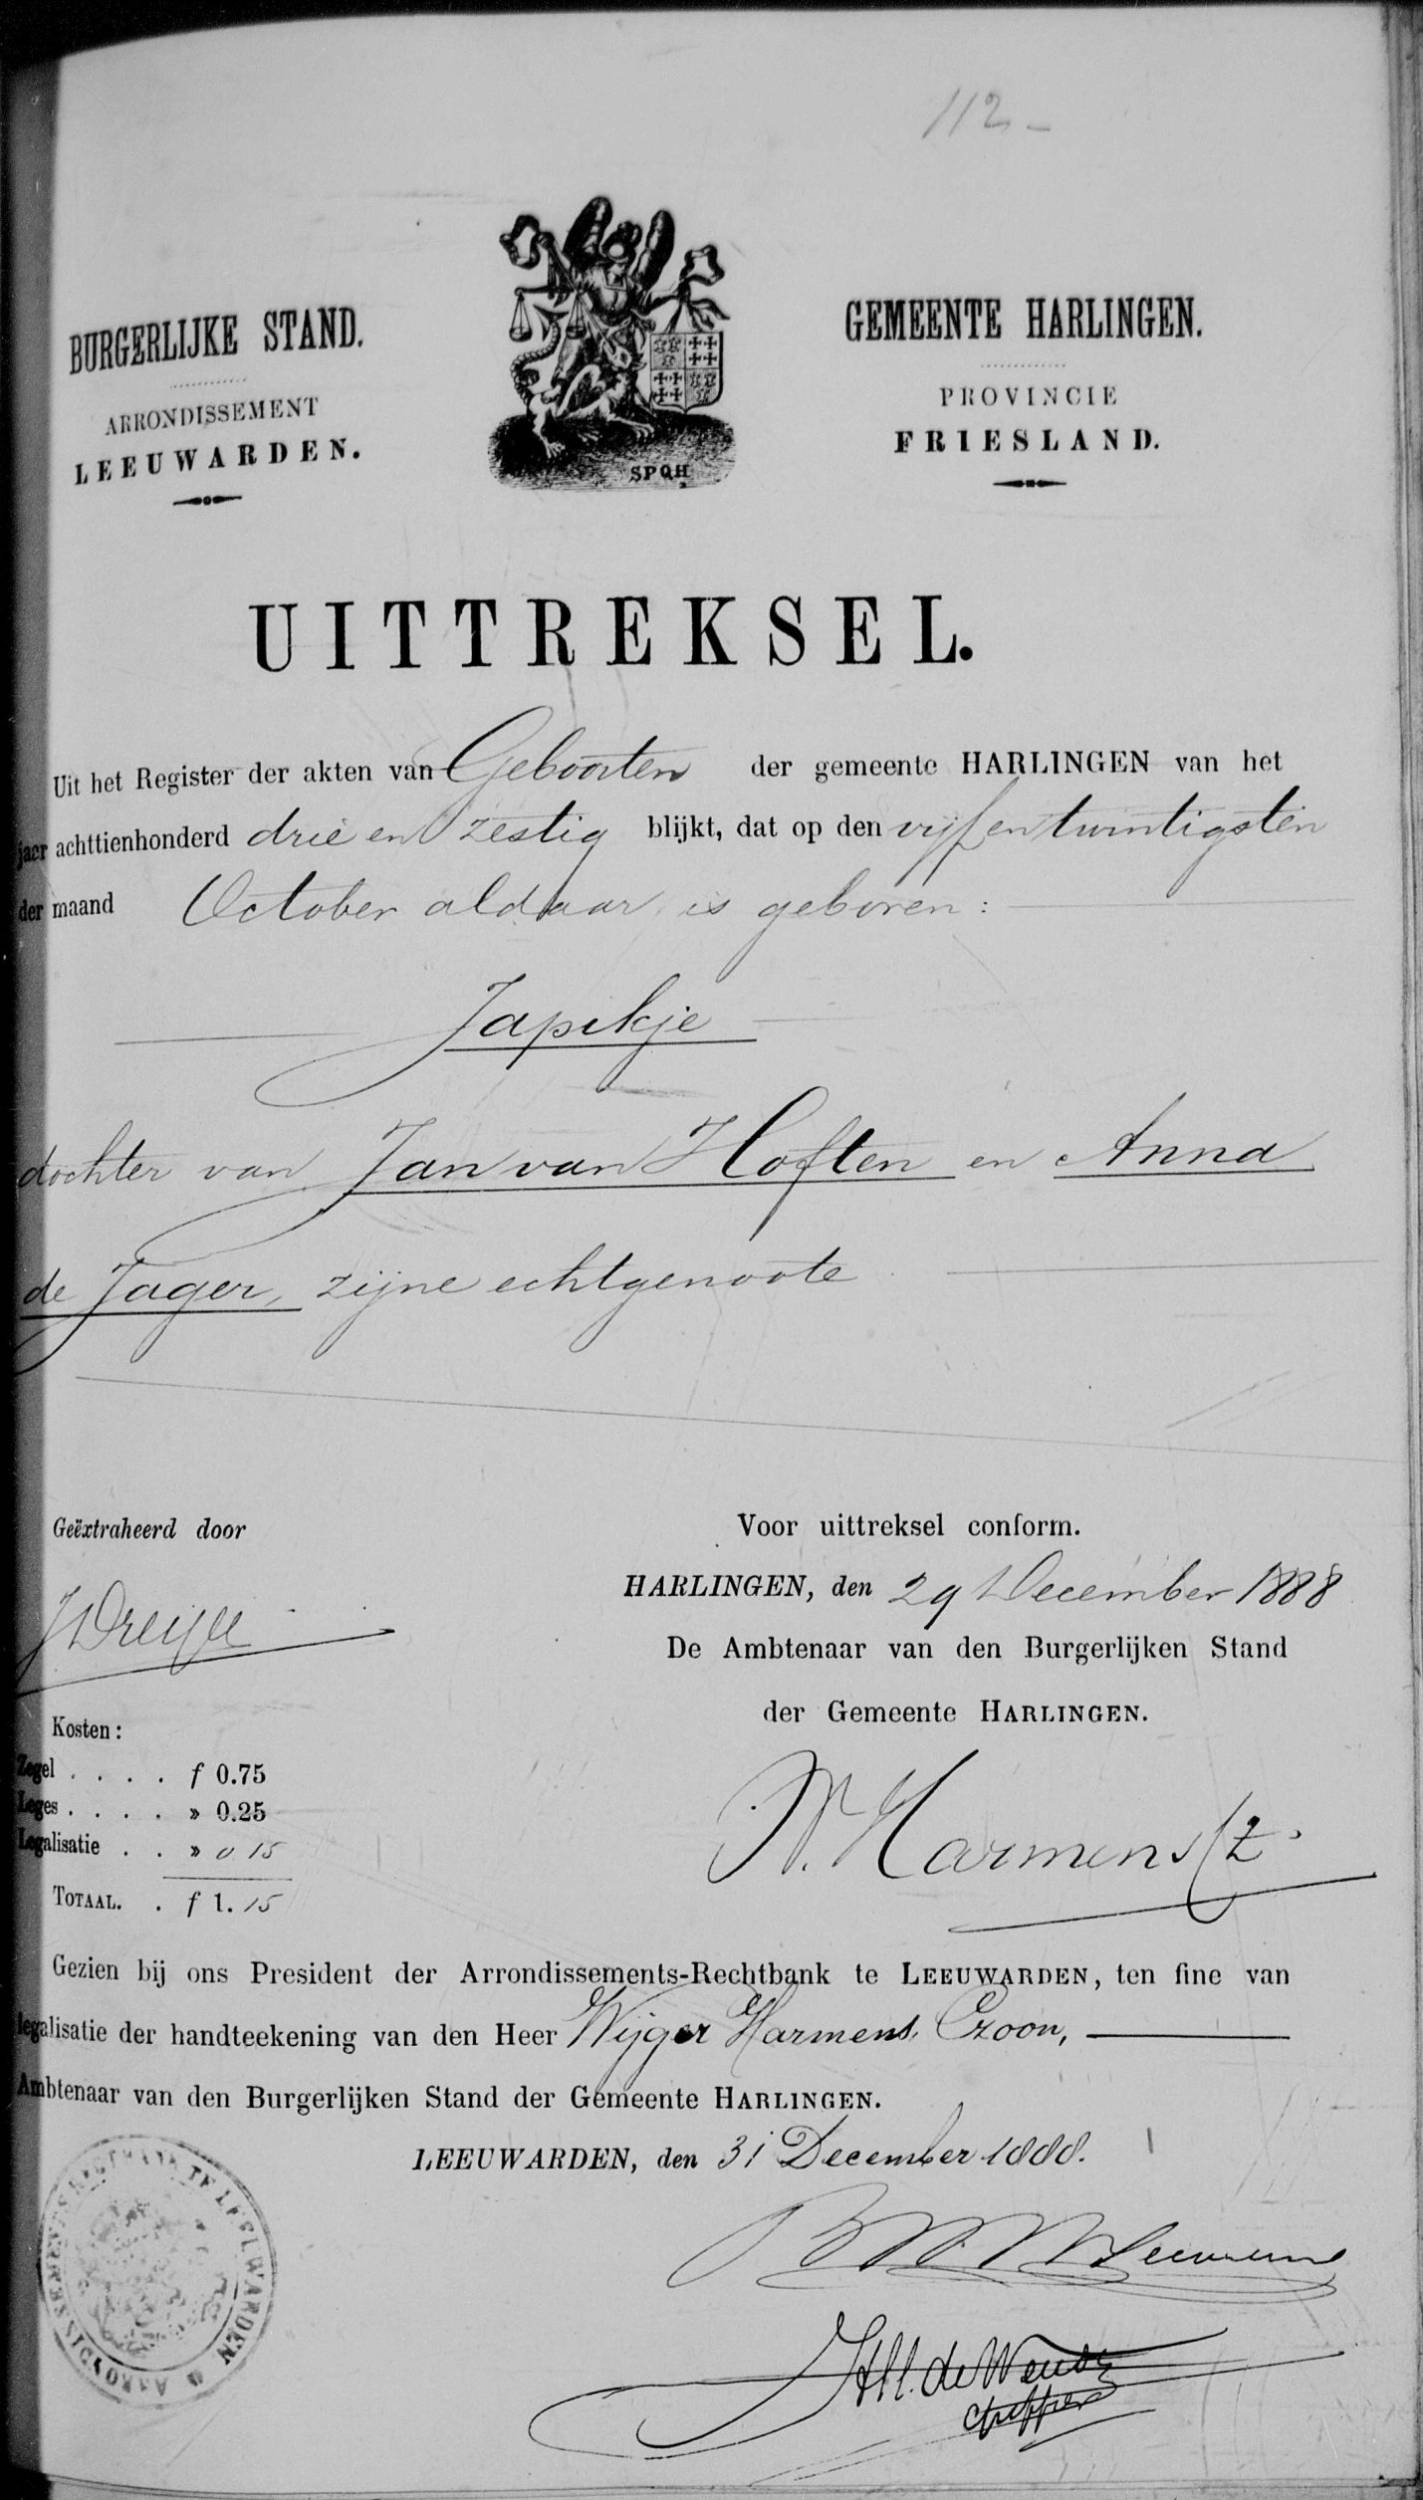 112
BURGERLIJKE STAND.
ARRONDISSEMENT
LEEUWARDEN.
SPQH
GEMEENTE HARLINGEN.
PROVINCIE
FRIESLAND.
UITTREKSEL.
Uit het Register der akten van Geboorten der gemeente HARLINGEN van het
jaar achttienhonderd drie en zestig blijkt, dat op den vijf en twintigsten
der maand October aldaar is geboren:
Japikje
dochter van Jan van Hoften en Anna
de Jager, zijne echtgenoote
Geëxtraheerd door
Voor uittreksel conform.
HARLINGEN, den 29 December 1888
De Ambtenaar van den Burgerlijken Stand
der Gemeente HARLINGEN.
W. Harmens Cz.
Kosten:
Zegel . . . . f 0.75
Leges . . . . » 0.25
Legalisatie . . » 0 15
TOTAAL. . f 1.15
Gezien bij ons President der Arrondissements-Rechtbank te LEEUWARDEN, ten fine van
legalisatie der handteekening van den Heer Wijger Harmens, Czoon,
Ambtenaar van den Burgerlijken Stand der Gemeente HARLINGEN.
LEEUWARDEN, den 31 December 1888.
TE LEEUWARDEN